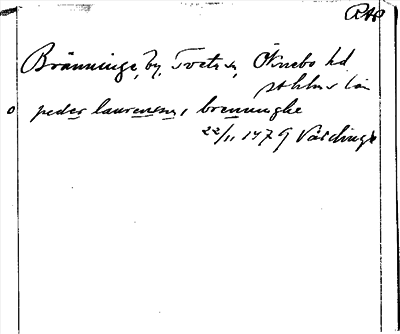 RAP
Bränninge, by, Tveta sn, Öknebo hd
sthlms län
o peder laurenssens i brenninghe
22/11 1479 Vårdinge